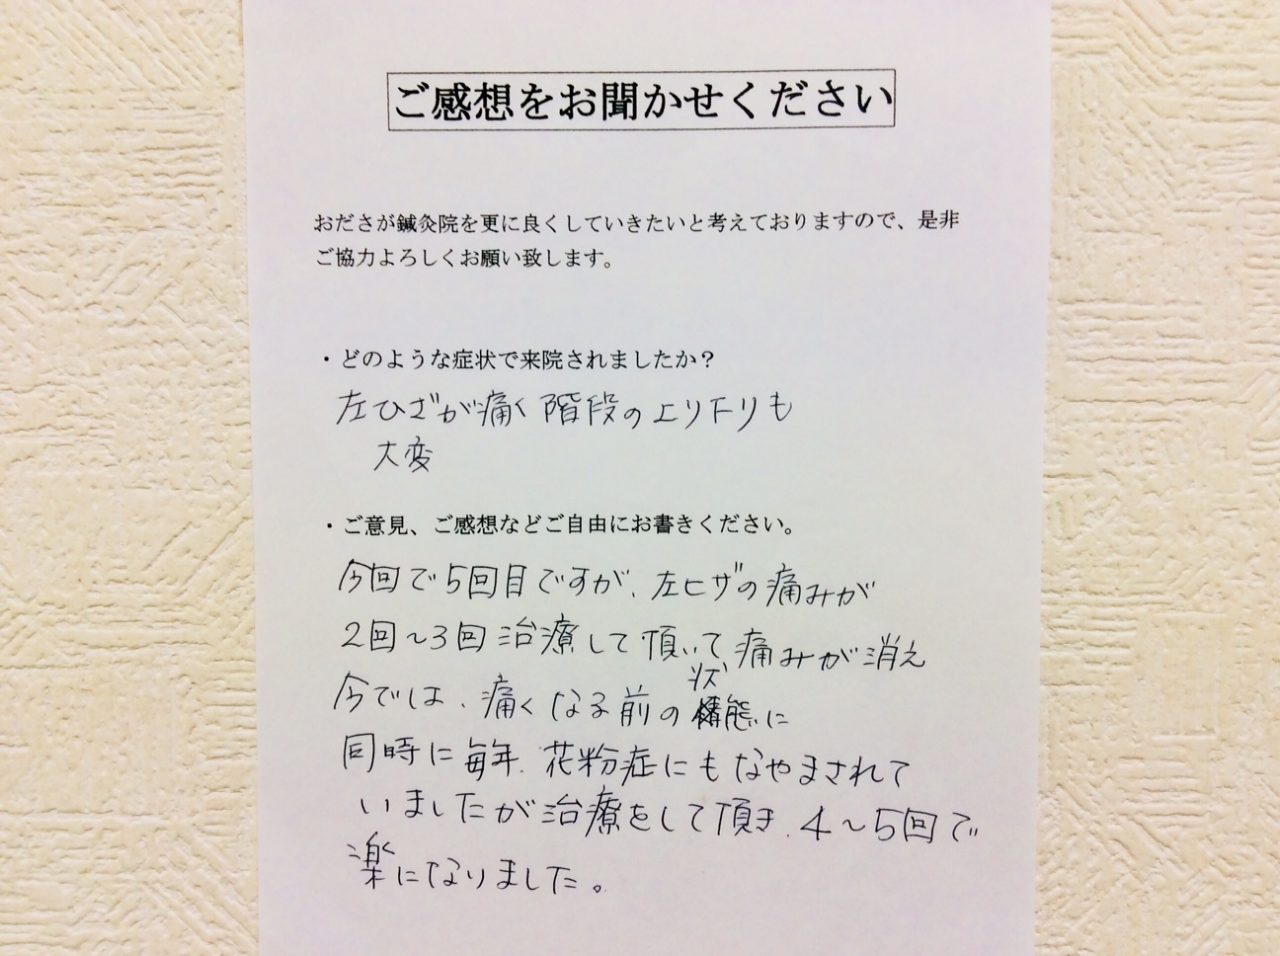 ご感想をお聞かせください
おださが鍼灸院を更に良くしていきたいと考えておりますので、是非
ご協力よろしくお願い致します。
・どのような症状で来院されましたか？
左ひざが痛く階段の上り下りも
大変
・ご意見、ご感想などご自由にお書きください。
今回で5回目ですが、左ヒザの痛みが
2回〜3回治療して頂いて、痛みが消え
今では、痛くなる前の状態に
同時に毎年、花粉症にもなやまされて
いましたが治療をして頂き、4〜5回で
楽になりました。